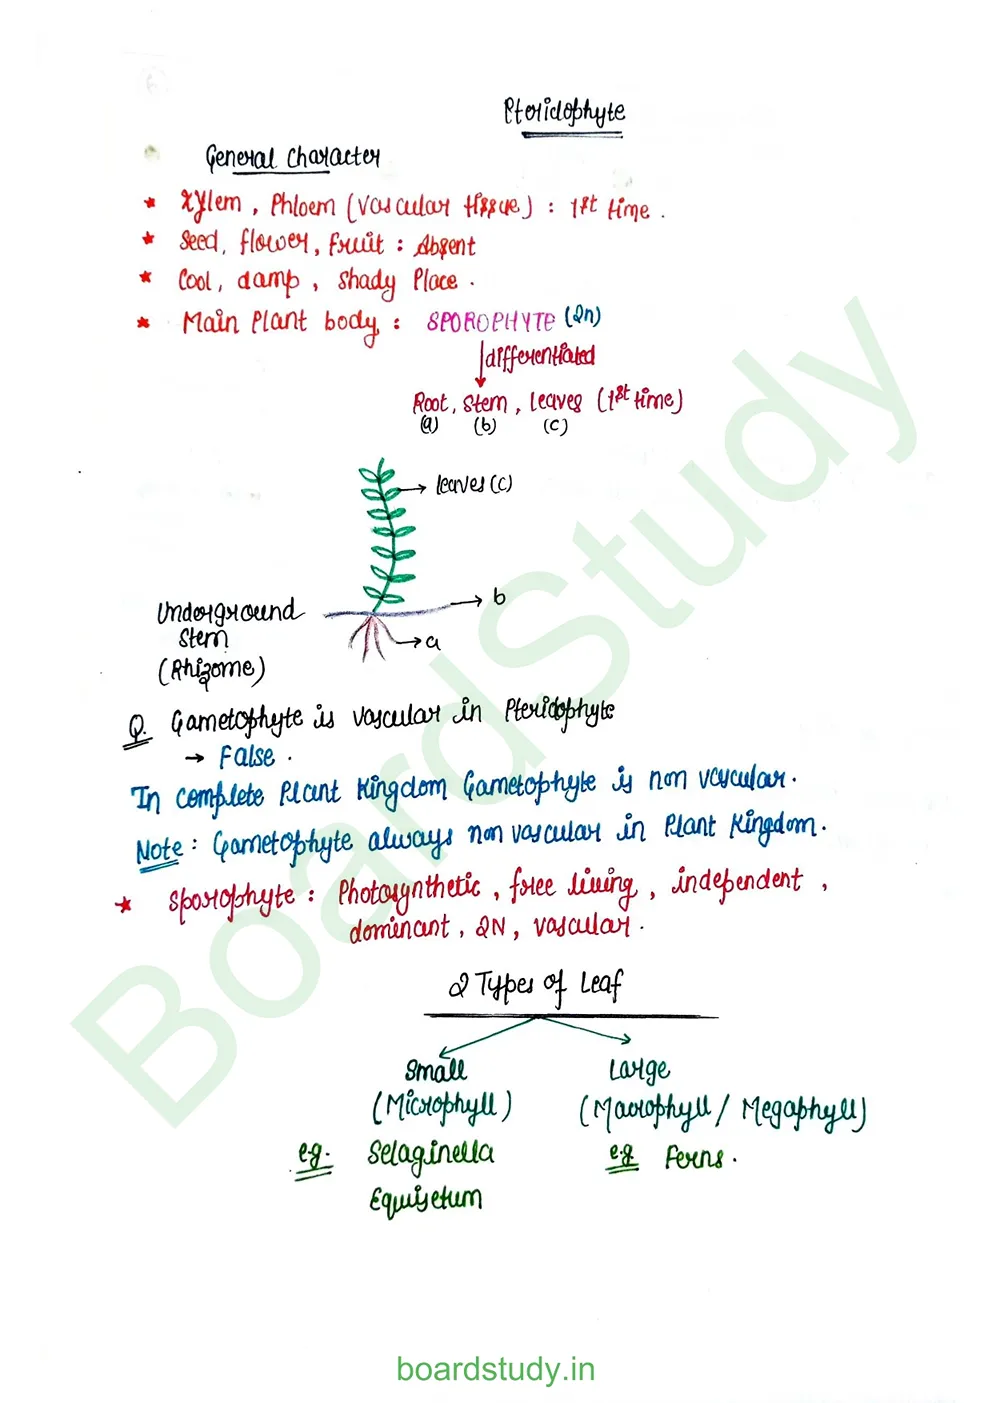 Pteridophyte
General Character
★ Xylem, Phloem (Vascular tissue) : 1st time.
★ Seed, flower, fruit : Absent
★ Cool, damp, shady Place.
★ Main Plant body : SPOROPHYTE (2n)
differentiated
Root, Stem, leaves (1st time)
(a) (b) (c)
leaves (c)
b
Underground
Stem
(Rhizome)
a
Q. Gametophyte is vascular in Pteridophyte
→ False.
In complete Plant Kingdom Gametophyte is non vascular.
Note : Gametophyte always non vascular in Plant Kingdom.
★ Sporophyte : Photosynthetic, free living, independent,
dominant, 2N, vascular.
2 Types of Leaf
Small Large
(Microphyll) (Macrophyll / Megaphyll)
e.g. Selaginella e.g. Ferns.
Equisetum
BoardStudy
boardstudy.in